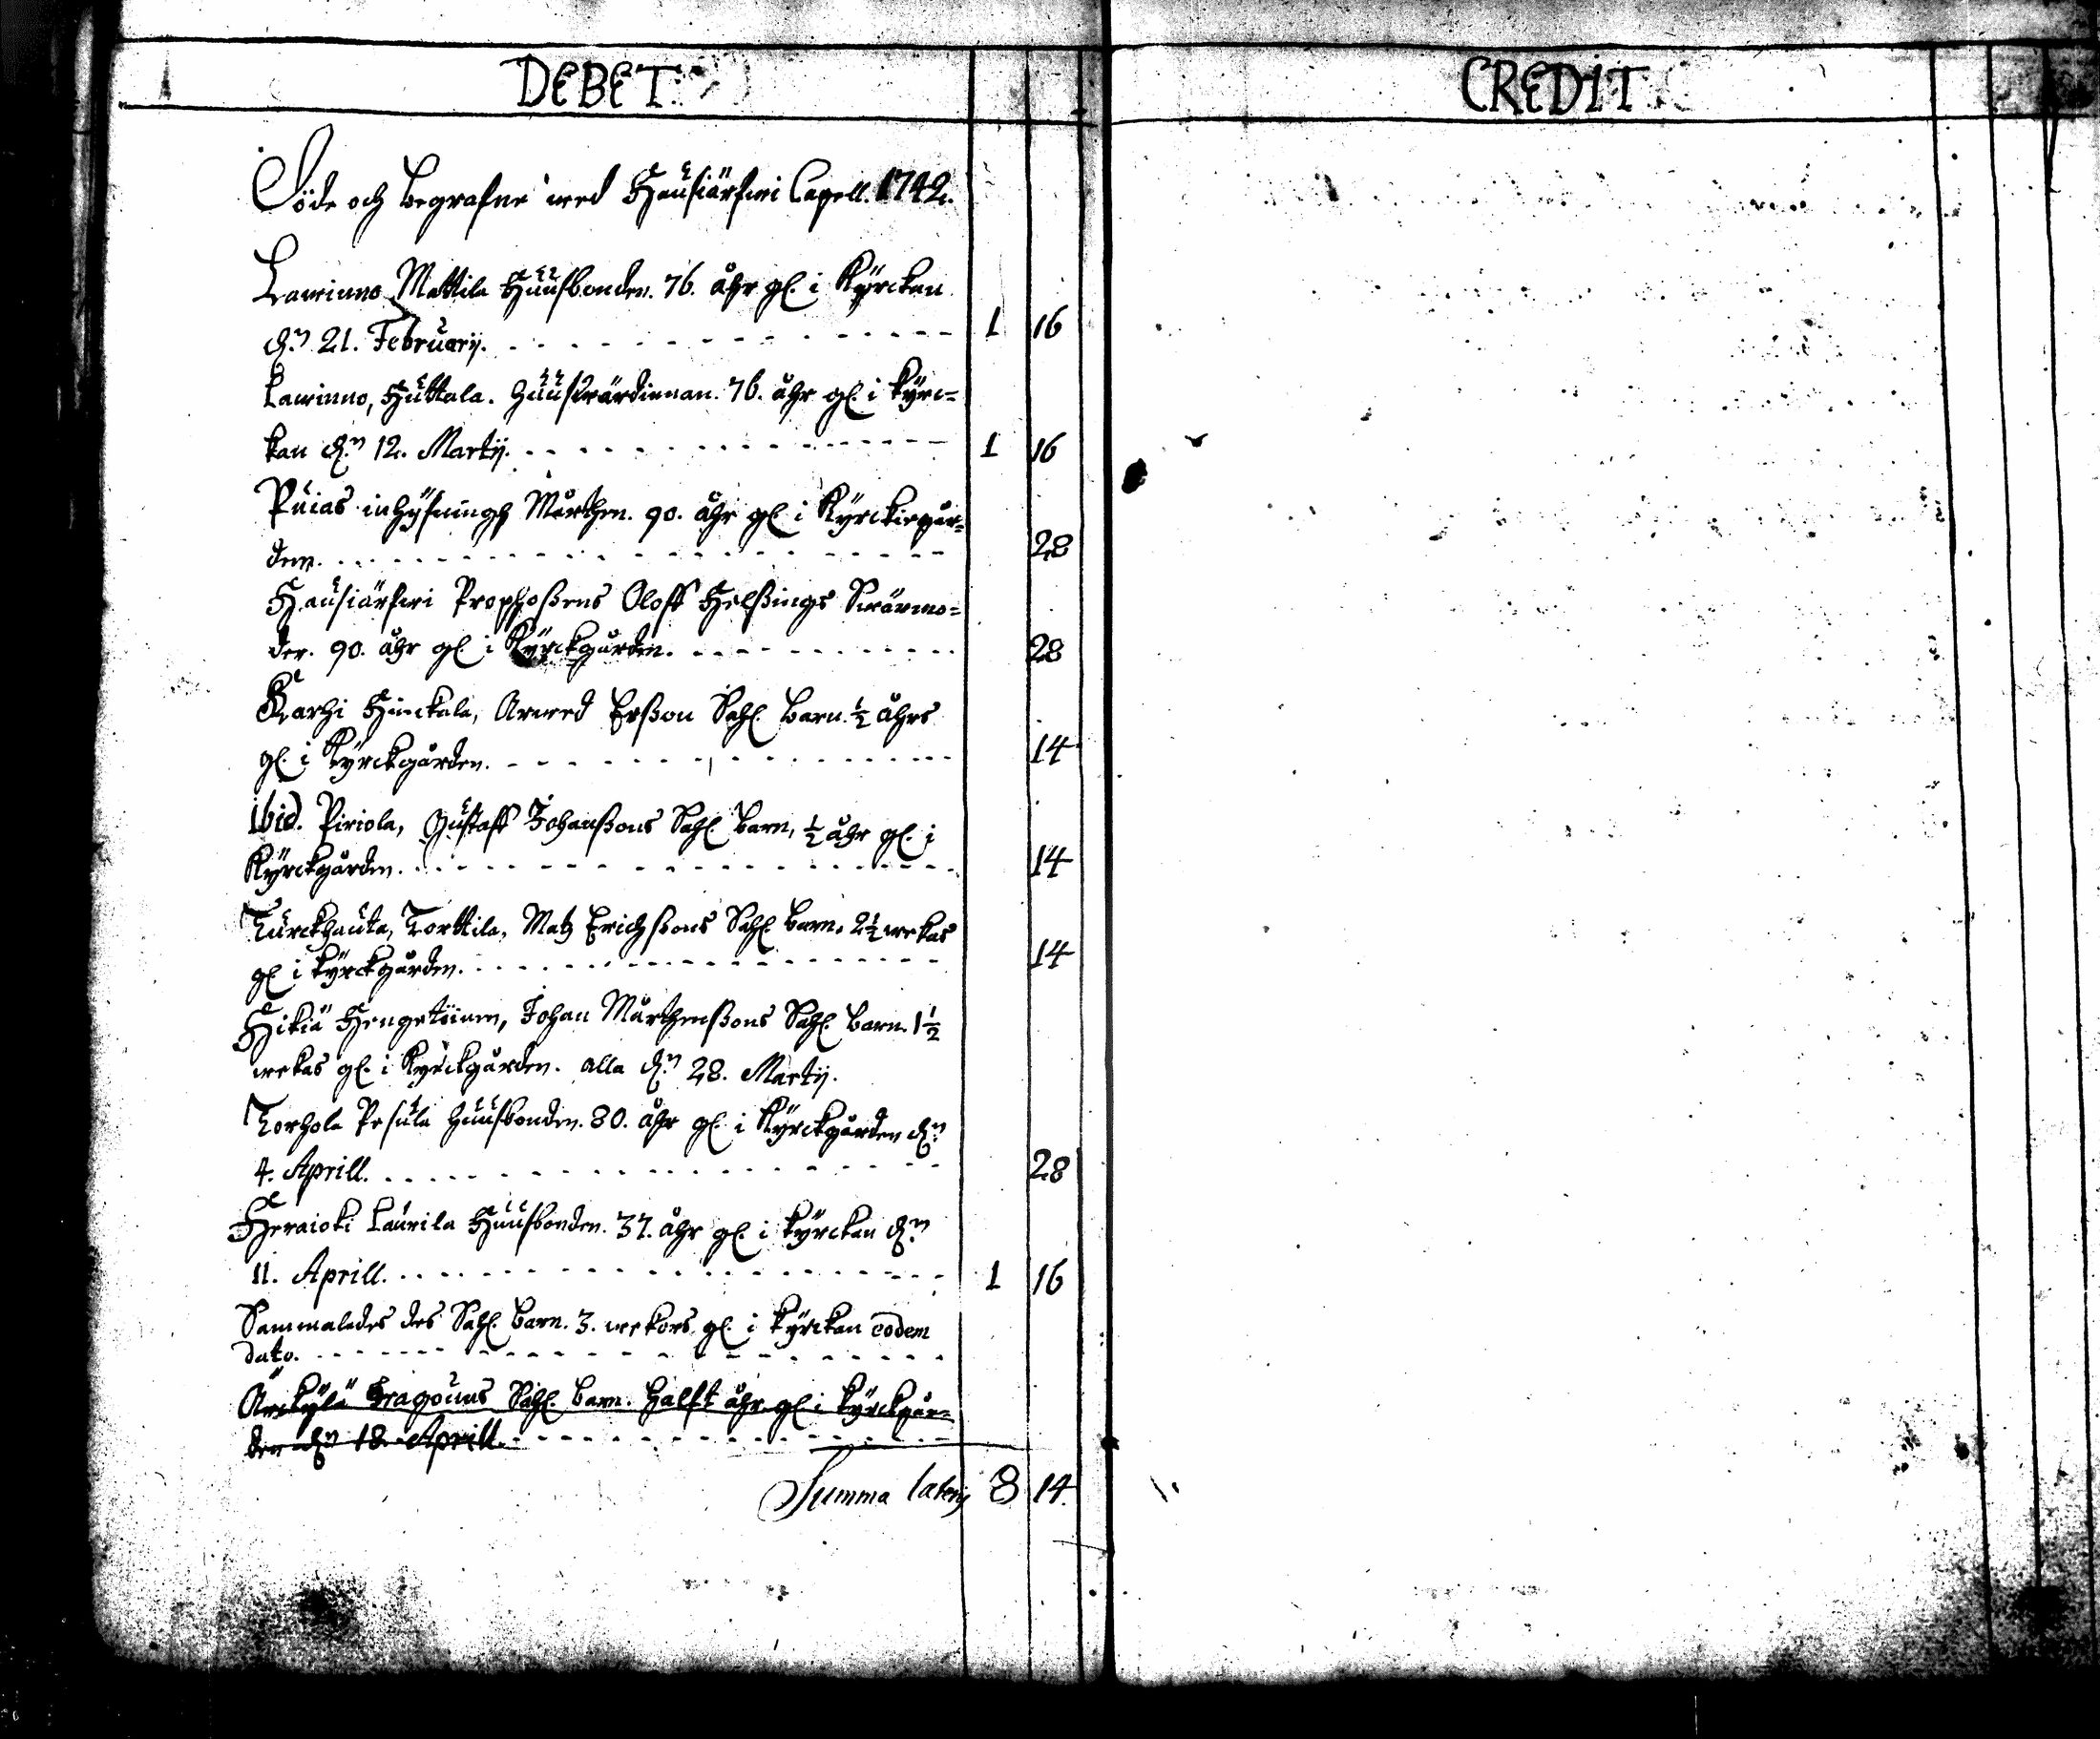 DEBET
CREDIT
Döde och begrafne wed Hausiärfwi Capell. 1742.
Lawinno Mattila Huusbonden. 76. åhr gl. i Kyrckan
d.n 21. Februarij. 1 16
Lawinno, Huttala. Huuswärdinnan. 76. åhr gl. i kyrc=
kan d.n 12. Martij. 1 16
Puias inhysningh Mårthen. 90. åhr gl. i Kyrckiegår=
den. 28
Hausiärfwi Prophossens Oloff Helssings Swärmo=
der. 90. åhr gl. i Kyrckgården. 28
Karhi Hinckala, Arwed Ersson Sahl. barn ½ åhrs
gl. i Kyrckgården. 14
Ibid. Piriola, Gustaff Johanssons Sahl. barn, ½ åhr gl. i
Kyrckgården. 14
Turckhauta, Torttila, Matz Erichssons Sahl. barn. 2½ wekas
gl i kyrckgården. 14
Hikiä Hengetöinen, Johan Mårthenssons Sahl. barn. 1½
wekas gl. i Kyrckgården. alla d.n 28. Martij.
Torhola Pesula huusbonden. 80. åhr gl. i Kyrckgården d.n
4. Aprill. 28
Heraioki Laurila Huusbonden. 37. åhr gl. i kyrckan d.n
11. Aprill. 1 16
Sammaledes des Sahl. barn. 3. wekors gl. i kyrckan eodem
dato.
Arckylä Dragouns Sahl. barn. halft åhr gl i kyrckgår=
den d.n 18. Aprill.
Summa lateris 8 14